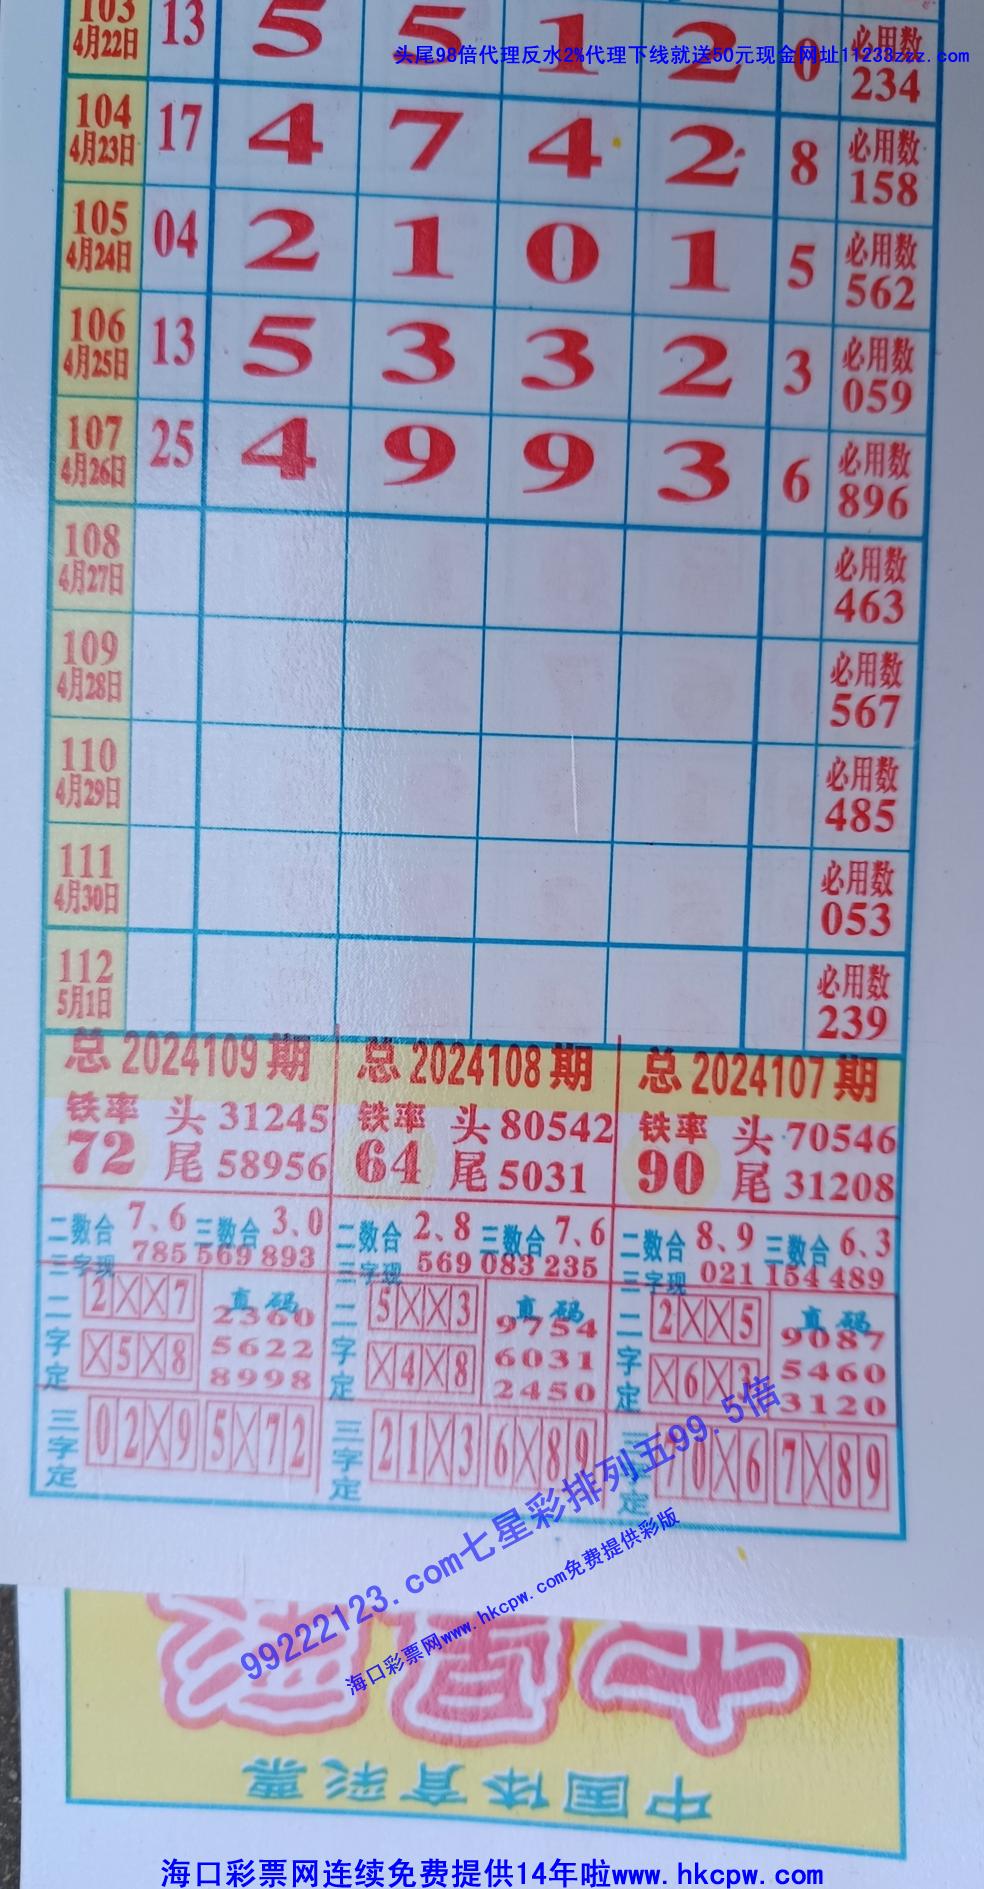 103 13 5 5 1 2 0 必用数
4月22日 234
头尾98倍代理反水2%代理下线就送50元现金网址11233zzz.com
104 17 4 7 4 2 8 必用数
4月23日 158
105 04 2 1 0 1 5 必用数
4月24日 562
106 13 5 3 3 2 3 必用数
4月25日 059
107 25 4 9 9 3 6 必用数
4月26日 896
108 必用数
4月27日 463
109 必用数
4月28日 567
110 必用数
4月29日 485
111 必用数
4月30日 053
112 必用数
5月1日 239
总2024109期 总2024108期 总2024107期
铁率 头31245 铁率 头80542 铁率 头70546
72 尾58956 64 尾5031 90 尾31208
二数合 7、6 三数合 3、0 二数合 2、8 三数合 7、6 二数合 8、9 三数合 6、3
三字现 785 569 893 三字现 569 083 235 三字现 021 154 489
二字定 2XX7 直码 2360 二字定 5XX3 直码 9754 二字定 2XX5 直码 9087
X5X8 5622 X4X8 6031 X6X3 5460
8998 2450 3120
三字定 02X9 5X72 三字定 21X3 6X89 三字定 70X6 7X89
99222123.com七星彩排列五99.5倍
海口彩票网www.hkcpw.com免费提供彩版
七星彩
中国体育彩票
海口彩票网连续免费提供14年啦www.hkcpw.com